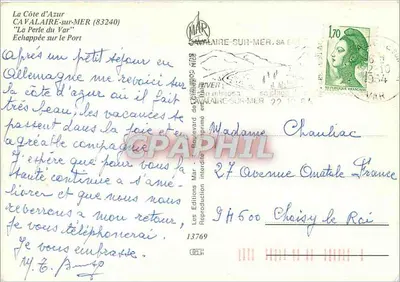 La Côte d'Azur
CAVALAIRE-sur-MER (83240)
"La Perle du Var"
Echappée sur le Port
Après un petit séjour en
Allemagne me revoici sur
la côte d'azur où il fait
très beau, les vacances se
passent dans la joie et en
agréable compagnie.
J'espère que pour vous la
santé continue à s'amé-
liorer et que nous nous
reverrons à mon retour,
je vous téléphonerai.
Je vous embrasse.
MAR
Les Editions Mar
Reproduction interdite
13769
CAVALAIRE-SUR-MER
1,70
REPUBLIQUE FRANÇAISE
Madame Chauliac
27 Avenue Anatole France
94600 Choisy le Roi
CPAPHIL